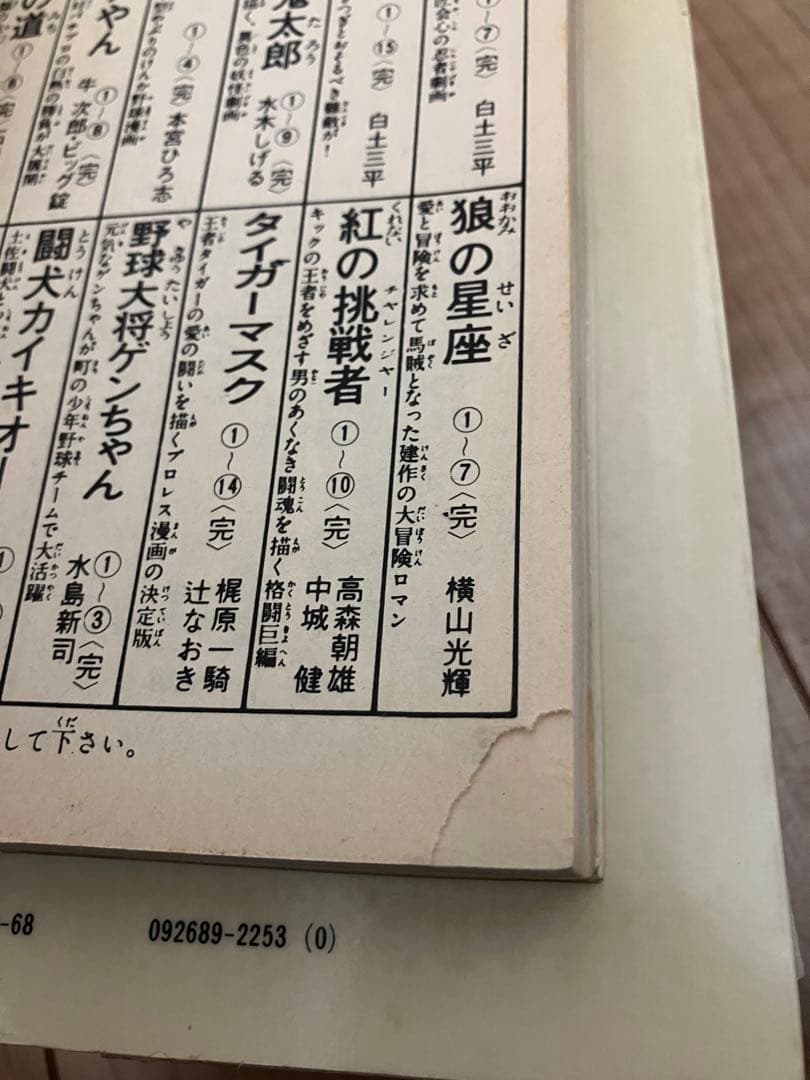 ①〜⑦〈完〉 白土三平
心の忍者劇画
①〜⑮〈完〉 白土三平
つぎとおそるべき難敵が！
太郎 ①〜⑨〈完〉 水木しげる
描く、異色の妖怪劇画
①〜④〈完〉 本宮ひろ志
のけんか野球漫画
やん ①〜⑧〈完〉 牛次郎・ビッグ錠
の道
狼の星座 ①〜⑦〈完〉 横山光輝
愛と冒険を求めて馬賊となった建作の大冒険ロマン
紅の挑戦者 ①〜⑩〈完〉 高森朝雄 中城 健
キックの王者をめざす男のあくなき闘魂を描く格闘巨編
タイガーマスク ①〜⑭〈完〉 梶原一騎 辻なおき
王者タイガーの愛の闘いを描くプロレス漫画の決定版
野球大将ゲンちゃん ①〜③〈完〉 水島新司
元気なゲンちゃんが町の少年野球チームで大活躍
闘犬カイキオー
土佐闘犬
して下さい。
-68
092689-2253 (0)